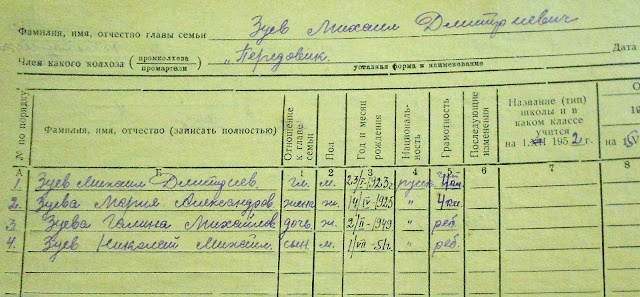 Фамилия, имя, отчество главы семьи Зуев Михаил Дмитриевич
Член какого колхоза (промколхоза промартели) „Передовик.
уставная форма и наименование
Дата
№ по порядку Фамилия, имя, отчество (записать полностью) Отношение к главе семьи Пол Год и месяц рождения Националь-ность Грамотность Последующие изменения Название (тип) школы и в каком классе учится на 1. 1952 г. О 19 на
А Б 1 2 3 4 5 6 7 8
1. Зуев Михаил Дмитриев. гл. м. 23/I-1923г. русс. 4кл.
2. Зуева Мария Александров. жена ж. 14/IV-1925 " 4кл.
3. Зуева Галина Михайлов. дочь. ж. 2/II-1949 " реб.
4. Зуев Николай Михайл. сын м. 1/VII-51г. " реб.